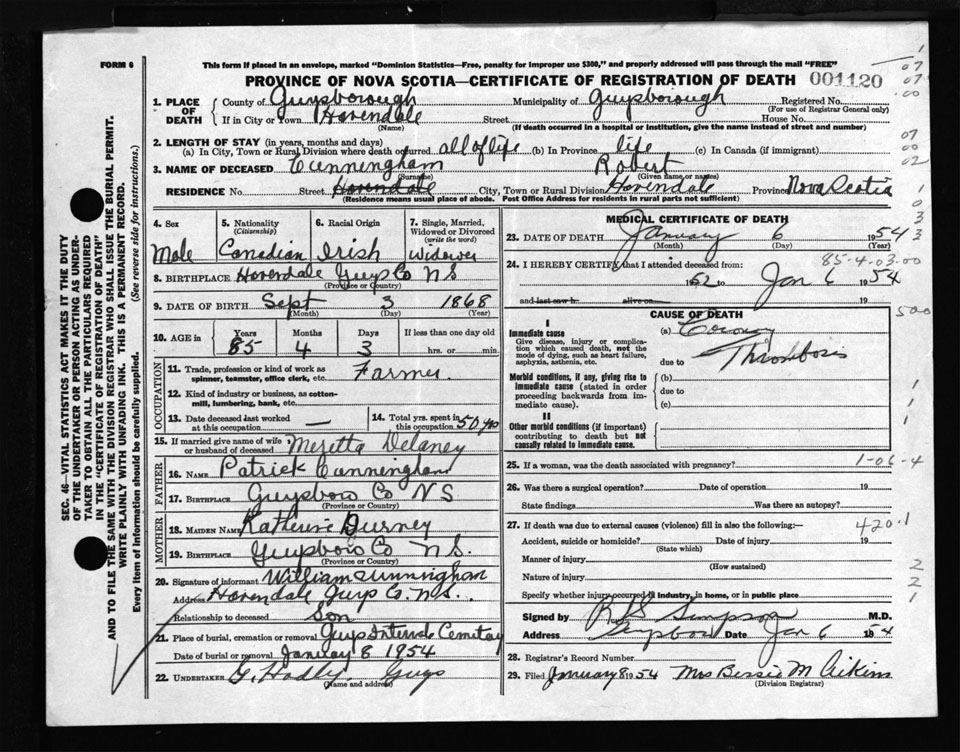 FORM 6
This form if placed in an envelope, marked "Dominion Statistics—Free, penalty for improper use $300," and properly addressed will pass through the mail "FREE"
PROVINCE OF NOVA SCOTIA—CERTIFICATE OF REGISTRATION OF DEATH 001120
1. PLACE OF DEATH
County of Guysborough Municipality of Guysborough Registered No.
(For use of Registrar General only)
If in City or Town Havendale Street House No.
(Name) (If death occurred in a hospital or institution, give the name instead of street and number)
2. LENGTH OF STAY (in years, months and days)
(a) In City, Town or Rural Division where death occurred all of life (b) In Province life (c) In Canada (if immigrant)
3. NAME OF DECEASED Cunningham Robert
(Surname) (Given name or names)
RESIDENCE No. Street Havendale City, Town or Rural Division Havendale Province Nova Scotia
(Residence means usual place of abode. Post Office Address for residents in rural parts not sufficient)
4. Sex 5. Nationality (Citizenship) 6. Racial Origin 7. Single, Married, Widowed or Divorced (write the word)
Male Canadian Irish Widower
8. BIRTHPLACE Havendale Guys Co N S
(Province or Country)
9. DATE OF BIRTH Sept 3 1868
(Month) (Day) (Year)
10. AGE in Years Months Days If less than one day old
85 4 3 hrs. or min.
OCCUPATION
11. Trade, profession or kind of work as spinner, teamster, office clerk, etc. Farmer
12. Kind of industry or business, as cotton-mill, lumbering, bank, etc.
13. Date deceased last worked at this occupation — 14. Total yrs. spent in this occupation 50 yrs
15. If married give name of wife or husband of deceased Meretta Delaney
FATHER
16. NAME Patrick Cunningham
17. BIRTHPLACE Guysboro Co N S
(Province or Country)
MOTHER
18. MAIDEN NAME Katherine Gurney
19. BIRTHPLACE Guysboro Co N S.
(Province or Country)
20. Signature of informant William Cunningham
Address Havendale Guys Co. N.S.
Relationship to deceased Son
21. Place of burial, cremation or removal Guys Cemetay
Date of burial or removal January 8 1954
22. UNDERTAKER G. Hadley Guys
(Name and address)
MEDICAL CERTIFICATE OF DEATH
23. DATE OF DEATH January 6 1954
(Month) (Day) (Year)
85-4-03-00
24. I HEREBY CERTIFY that I attended deceased from:
1952 to Jan 6 1954
and last saw h alive on 19
CAUSE OF DEATH
I
Immediate cause (a) Coronary
Give disease, injury or complication which caused death, not the mode of dying, such as heart failure, asphyxia, asthenia, etc. due to Thrombosis
Morbid conditions, if any, giving rise to immediate cause (stated in order proceeding backwards from immediate cause). (b)
due to
(c)
II
Other morbid conditions (if important) contributing to death but not causally related to immediate cause.
25. If a woman, was the death associated with pregnancy? 1-06-4
26. Was there a surgical operation? Date of operation 19
State findings Was there an autopsy?
27. If death was due to external causes (violence) fill in also the following:— 420.1
Accident, suicide or homicide? Date of injury 19
(State which)
Manner of injury
(How sustained)
Nature of injury
Specify whether injury occurred in industry, in home, or in public place
Signed by R S Simpson M.D.
Address Date Jan 6 1954
28. Registrar's Record Number
29. Filed January 8 1954 Mrs Bessie M Aikins
(Division Registrar)
SEC. 46—VITAL STATISTICS ACT MAKES IT THE DUTY OF THE UNDERTAKER OR PERSON ACTING AS UNDERTAKER TO OBTAIN ALL THE PARTICULARS REQUIRED IN THE "CERTIFICATE OF REGISTRATION OF DEATH" AND TO FILE THE SAME WITH THE DIVISION REGISTRAR WHO SHALL ISSUE THE BURIAL PERMIT.
WRITE PLAINLY WITH UNFADING INK. THIS IS A PERMANENT RECORD.
Every item of Information should be carefully supplied. (See reverse side for instructions.)
1
07
07
00
07
00
02
1
0
3
3
500
1
1
1
1
2
2
1